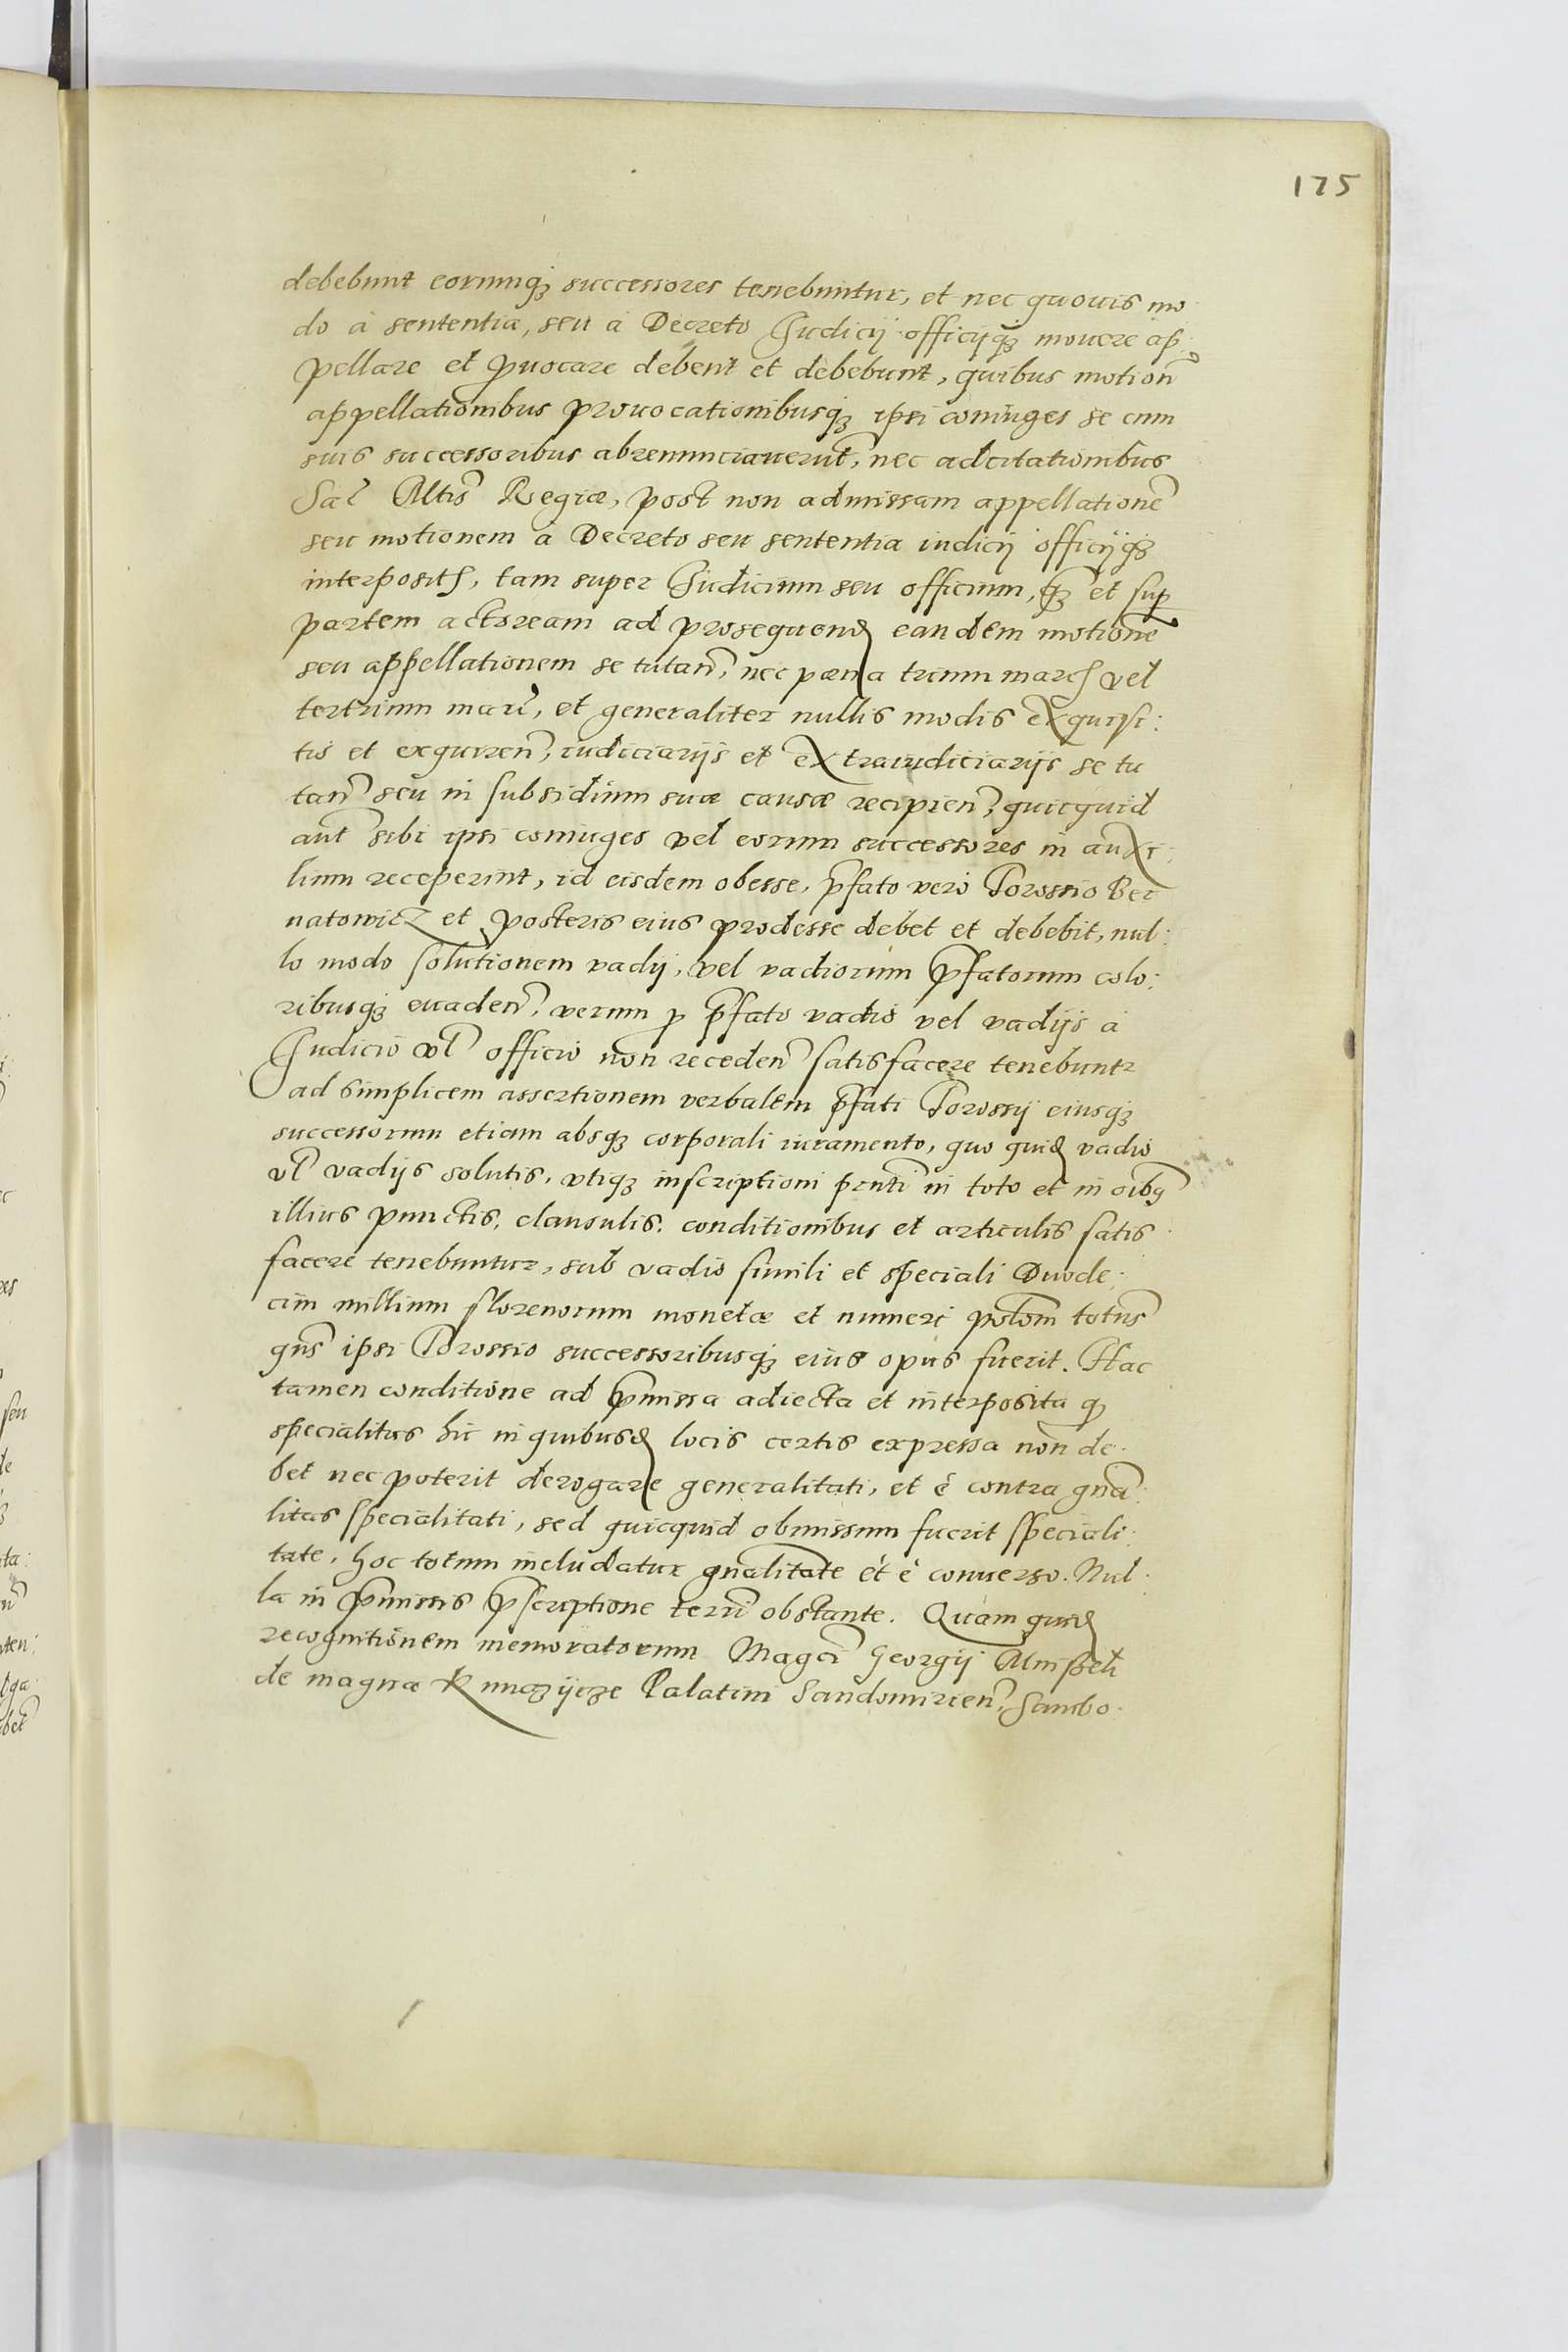 175
debebunt eorumq₃ successores tenebuntur, et nec quouis mo
do à sententia, seu à Decreto Judicij officijq₃ mouere ap:
pellare et ꝓuocare debent et debebunt, quibus motion
appellationibus prouocationibusq₃ ipsi coniuges se cum
suis successoribus abrenunciauerut̃, nec adcitationibus
Sac̃ Altis̃ Regiæ, post non admissam appellatione͂
seu motionem à Decreto seu sententia iudicij officijq₃
interposit, tam super Judicium seu officium, q₃ et sup
partem actoream ad prosequend eandem motione͂
seu appellationem se tutan͂, nec pæna trium marc vel
tertrium marc̃, et generaliter nullis modis exquisi:
tis et exquiren͂, iudiciarijs et extraiudiciarijs se tu
tan͂ seu in subsidium suæ causæ recipien͂, quicquid
aut̃ sibi ipsi coniuges vel eorum successores in auxi:
lium receperint, id eisdem obesse, p̃fato verò Torossio Ber
natowicz et posteris eius prodesse debet et debebit, nul:
lo modo solutionem vadij, vel vadiorum p̃fatorum colo:
ribusq₃ euaden͂, verum ꝓ p̃fato vadio vel vadijs à
Judicio vl̃ officio non receden͂ satisfacere tenebuntr
ad simplicem assertionem verbalem p̃fati Torossij eiusq₃
successorum etiam absq₃ corporali iuramento, quo quid vadio
vl̃ vadijs solutis, vtiq₃ inscriptioni pr̃nti in toto et in oib₉
illius punctis, clausulis, conditionibus et articulis satis
facere tenebuntur, sub vadio simili et speciali Duode:
cim millium florenorum monetæ et numeri polon̄ toties̃
qũs ipsi Torossio successoribusq₃ eius opus fuerit. Hac
tamen conditione ad p̃missa adiecta et interposita q
specialitas hic in quibusd locis certis expressa non de:
bet nec poterit derogare generalitati, et è contra gñã:
litas specialitati, sed quicquid obmissum fuerit speciali:
tate, hoc totum includatur gñalitate et è conuerso. Nul:
la in p̃missis p̃scriptione terr̃ obstante. Quam quid
recognitionem memoratorum Magci̇̃ Georgij Mniszeh
de magna Kunczijcze Palatini Sandomirien͂, Sambo: